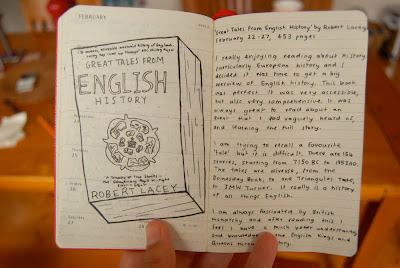 FEBRUARY
GREAT TALES FROM
ENGLISH
HISTORY
ROBERT LACEY
'Great Tales From English History' by Robert Lacey
February 22-27, 453 pages
I really enjoying reading about History
particularly European history and I
decided it was time to get a big
overview of English history. This book
was perfect. It was very accessible,
but also very comprehensive. It was
always great to read about an
event that I had vaguely heard of,
and learning the full story.
I am trying to recall a favourite
'tale' but it is difficult. There are 154
stories, starting from 7150 BC to
The tales are diverse, from the
Domesday Book, to the Triangular Trade,
to JMW Turner. It really is a history
of all things English.
I am always fascinated by British
monarchy and after reading this I
feel I have a much better understanding
and knowledge of the English Kings and
Queens history.